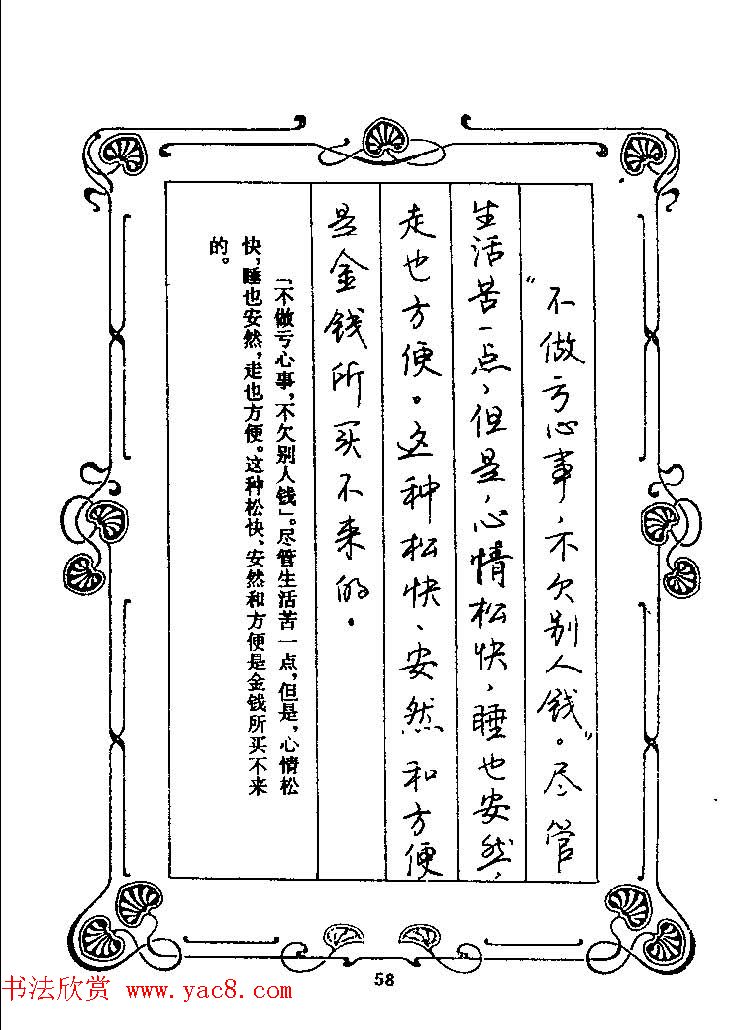 “不做亏心事，不欠别人钱”。尽管
生活苦一点，但是，心情松快，睡也安然，
走也方便。这种松快、安然和方便
是金钱所买不来的。
「不做亏心事，不欠别人钱」。尽管生活苦一点，但是，心情松
快，睡也安然，走也方便。这种松快、安然和方便是金钱所买不来
的。
58
书法欣赏 www.yac8.com